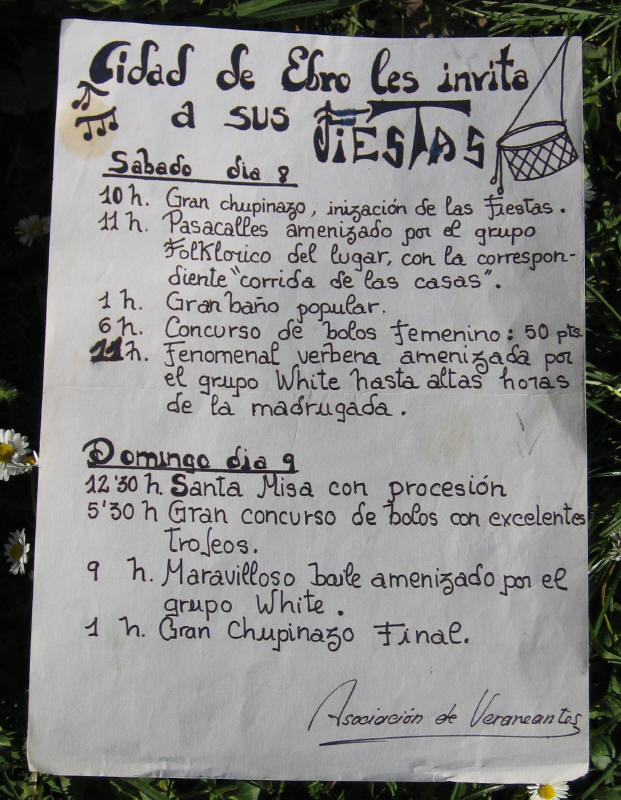 Cidad de Ebro les invita
a sus FiESTAS
Sabado dia 8
10 h. Gran chupinazo, inización de las fiestas.
11 h. Pasacalles amenizado por el grupo
Folklorico del lugar, con la correspon-
diente "corrida de las casas".
1 h. Gran baño popular.
6 h. Concurso de bolos femenino: 50 pts.
11 h. Fenomenal verbena amenizada por
el grupo White hasta altas horas
de la madrugada.
Domingo dia 9
12'30 h. Santa Misa con procesión
5'30 h Gran concurso de bolos con excelentes
trofeos.
9 h. Maravilloso baile amenizado por el
grupo White.
1 h. Gran Chupinazo Final.
Asociación de Veraneantes